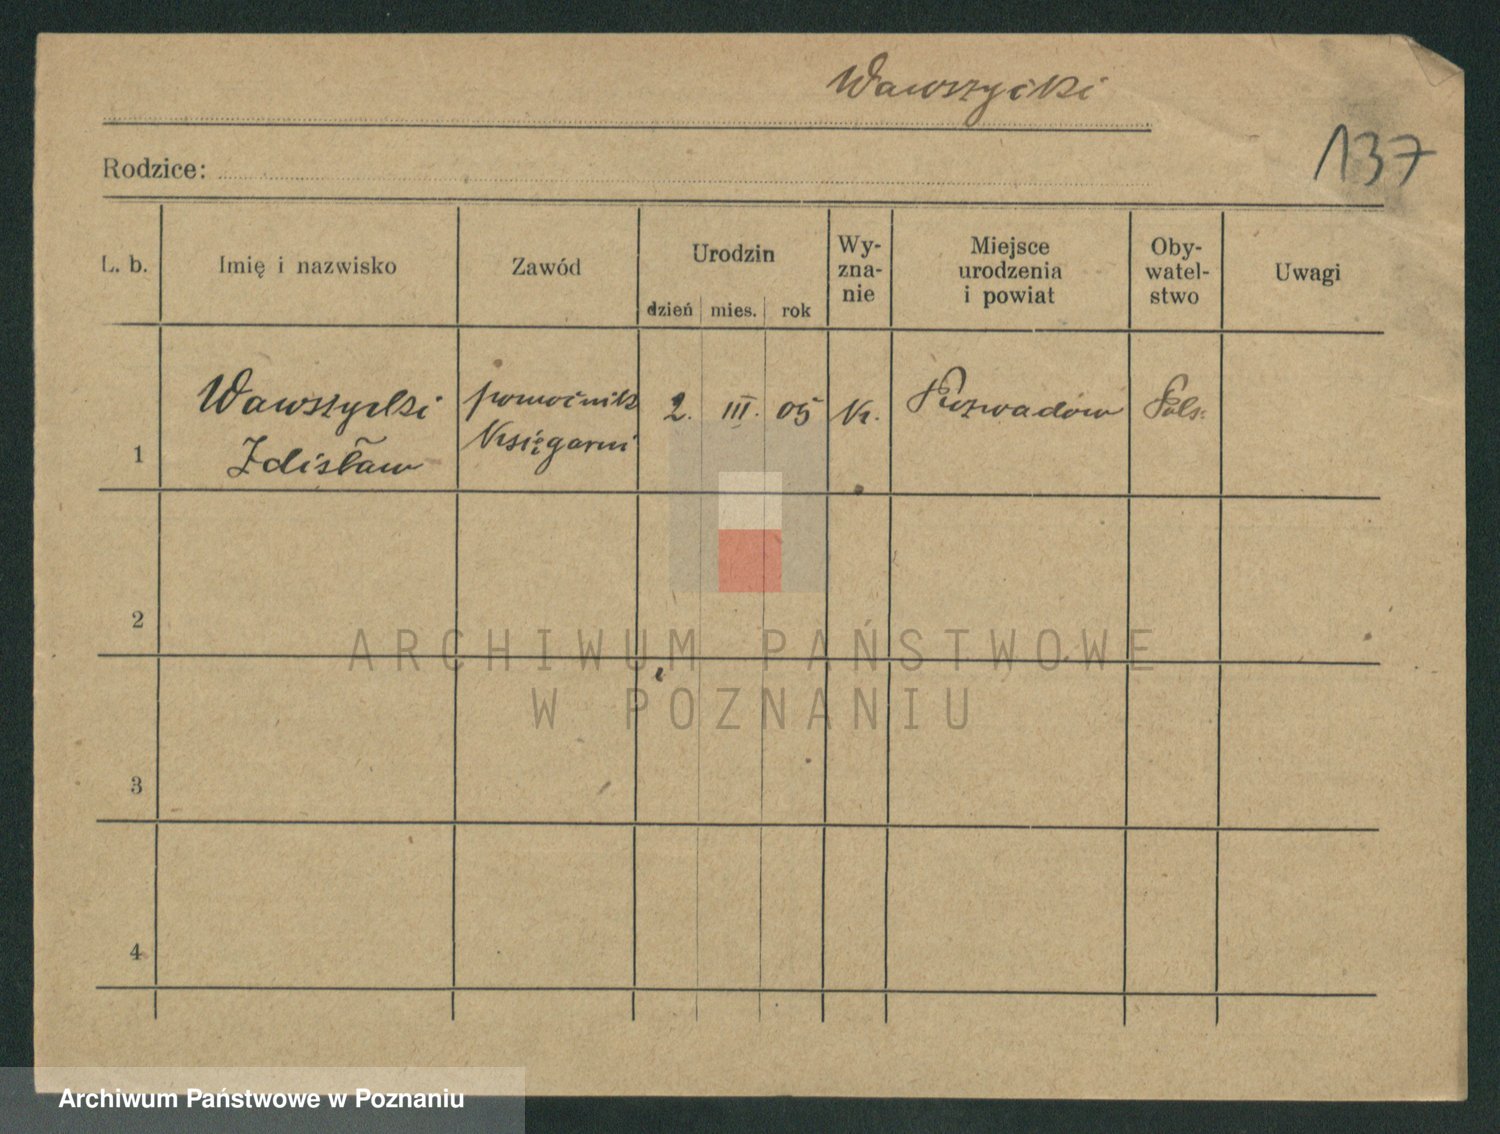 Wawszycki
137
Rodzice:
L. b.
Imię i nazwisko
Zawód
Urodzin
dzień
mies.
rok
Wy-
zna-
nie
Miejsce
urodzenia
i powiat
Oby-
watel-
stwo
Uwagi
1
Wawszycki
Zdisław
pomocnik
Księgarni
2.
III.
05
Rozwadów
Pols.
2
3
4
ARCHIWUM PAŃSTWOWE
W POZNANIU
Archiwum Państwowe w Poznaniu